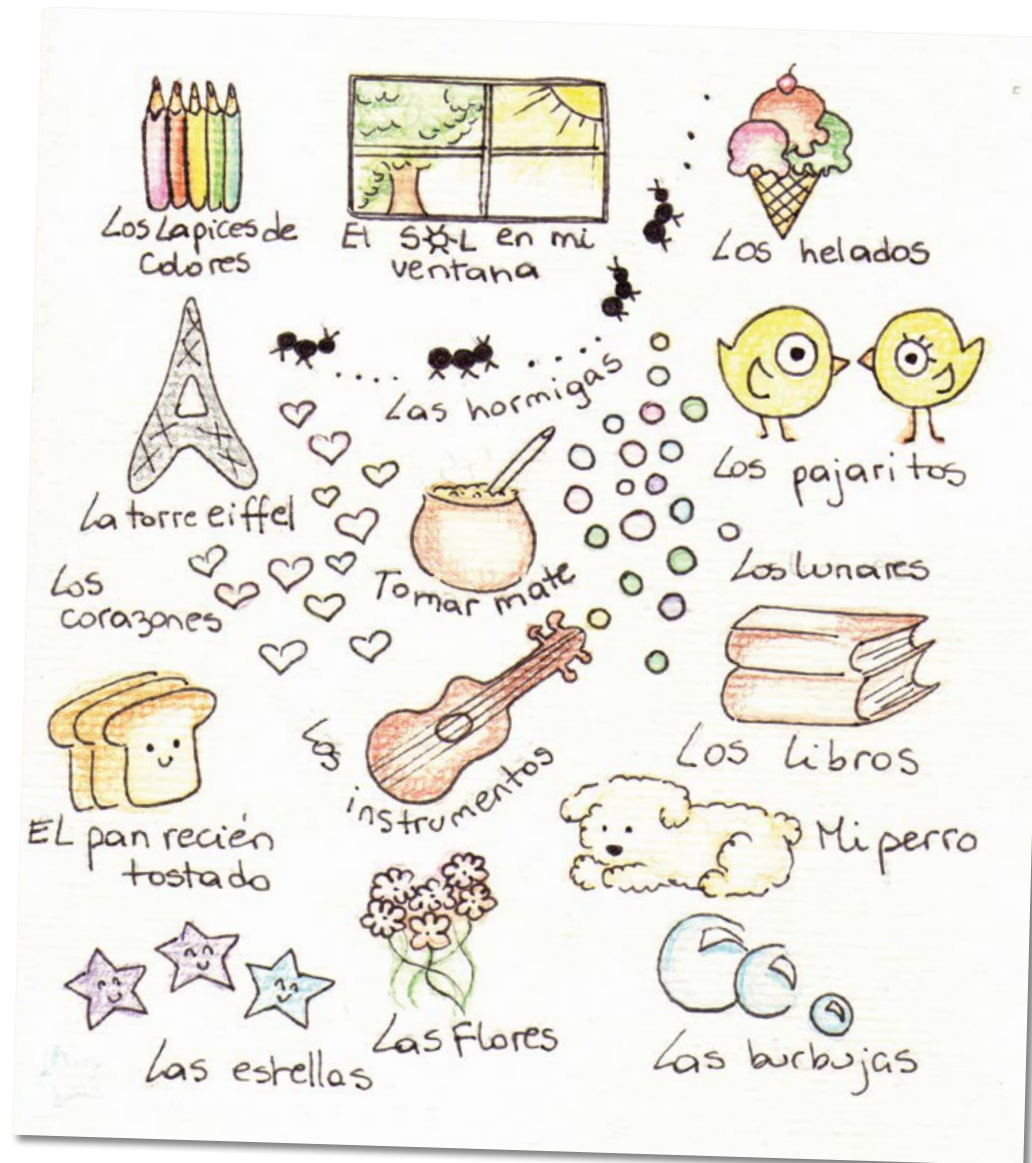 Los Lapices de
Colores
El SOL en mi
ventana
Los helados
Las hormigas
Los pajaritos
La torre eiffel
Tomar mate
Los lunares
Los
corazones
Los libros
Los
instrumentos
EL pan recién
tostado
Mi perro
Las Flores
Las estrellas
Las burbujas